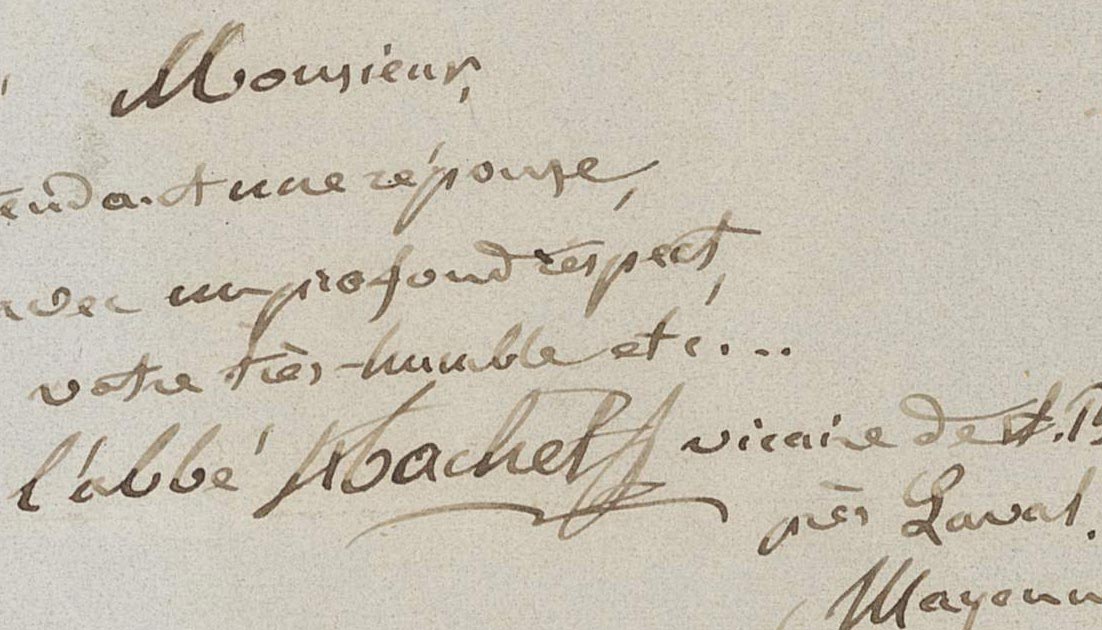 Monsieur,
tendant une réponse,
avec un profond respect,
votre très-humble etc...
l'abbé vicaire de St. P
près Laval.
Mayenn